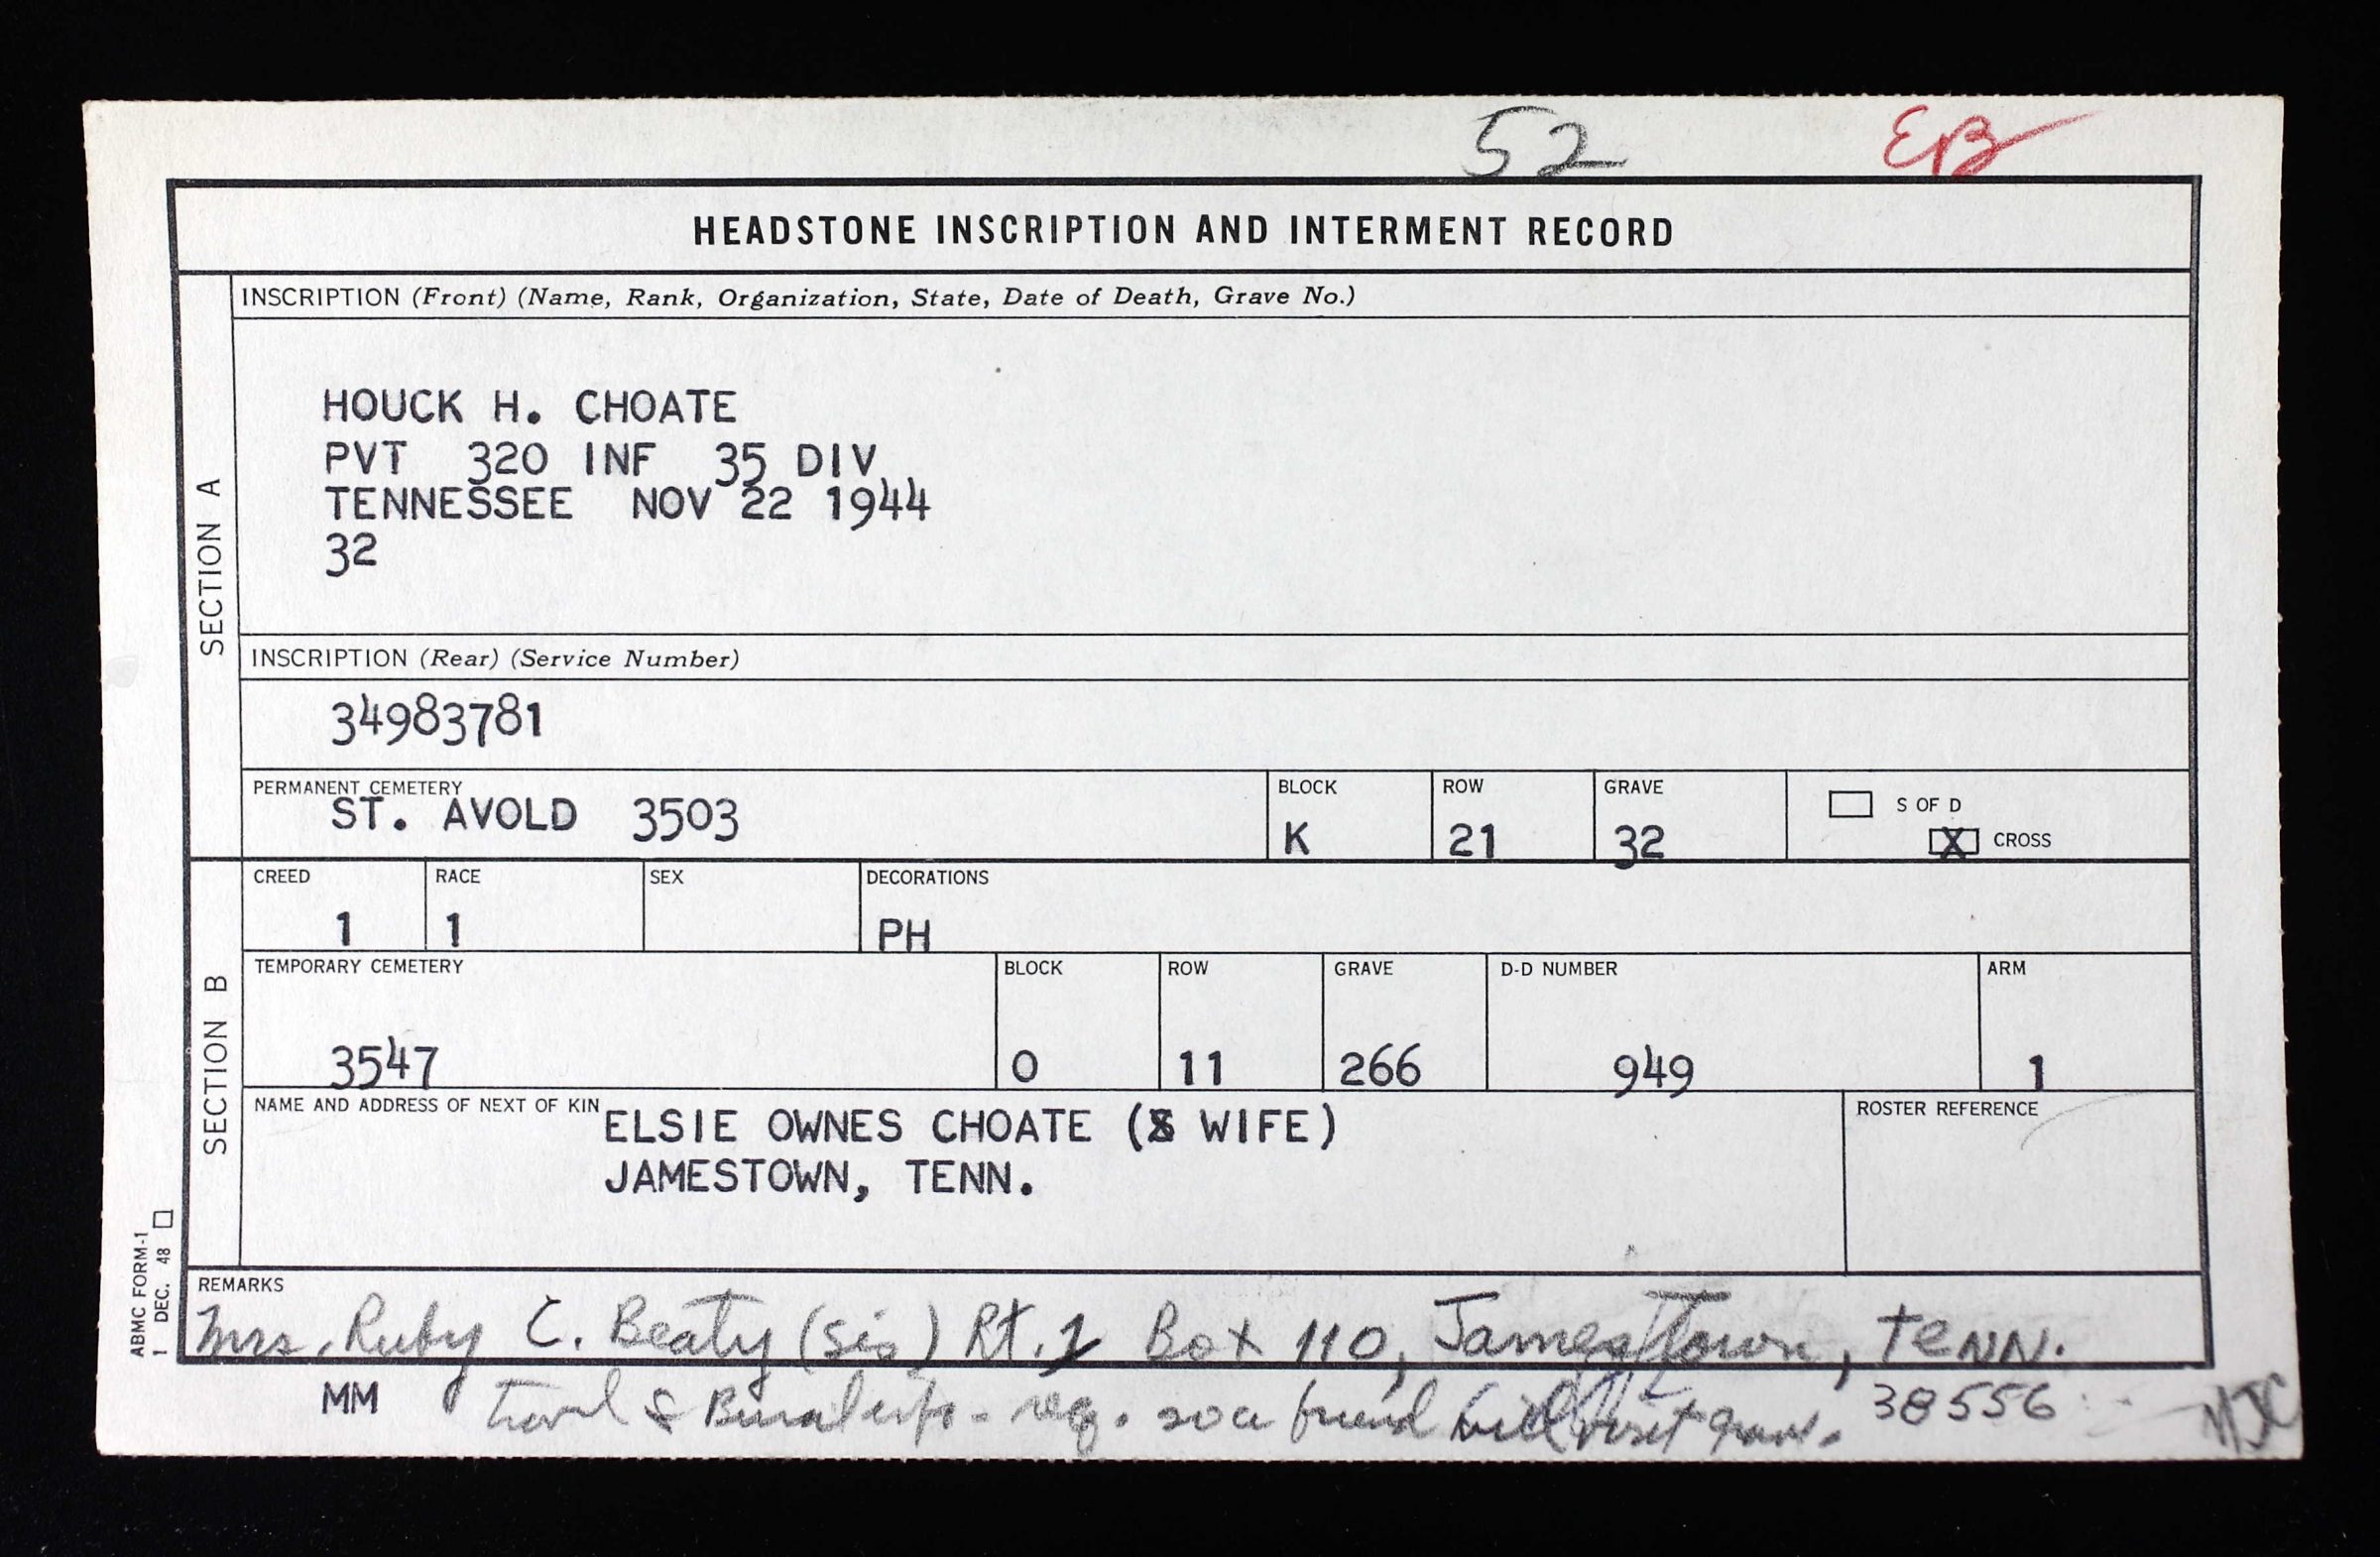 52 EB
HEADSTONE INSCRIPTION AND INTERMENT RECORD
SECTION A
INSCRIPTION (Front) (Name, Rank, Organization, State, Date of Death, Grave No.)
HOUCK H. CHOATE
PVT 320 INF 35 DIV
TENNESSEE NOV 22 1944
32
INSCRIPTION (Rear) (Service Number)
34983781
PERMANENT CEMETERY BLOCK ROW GRAVE S OF D
ST. AVOLD 3503 K 21 32 X CROSS
SECTION B
CREED RACE SEX DECORATIONS
1 1 PH
TEMPORARY CEMETERY BLOCK ROW GRAVE D-D NUMBER ARM
3547 O 11 266 949 1
NAME AND ADDRESS OF NEXT OF KIN ELSIE OWNES CHOATE ( WIFE) ROSTER REFERENCE
JAMESTOWN, TENN.
ABMC FORM-1
1 DEC. 48
REMARKS
Mrs. Ruby C. Beaty (sis) Rt. 2 Box 110, Jamestown, Tenn.
MM Travel & Burial info - req. so a friend will visit grave. 38556